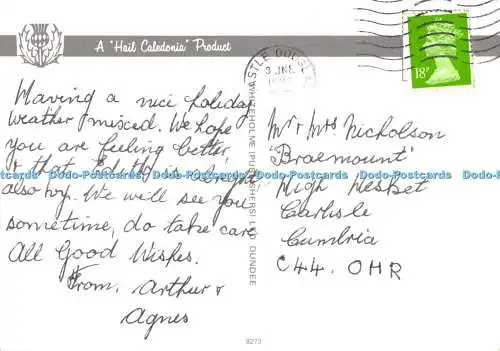 A "Hail Caledonia" Product
CASTLE DOUGLAS
3 JNE
18P
Having a nice holiday
weather mixed. We hope
you are feeling better
& that Edith is alright
also Ivy. We will see you
sometime, do take care
All Good Wishes.
From, Arthur &
Agnes
WHITEHOLME (PUBLISHERS) LTD DUNDEE
Mr & Mrs Nicholson
"Braemount"
High Hesket
Carlisle
Cumbria
C44. OHR
8273
Dodo-Postcards Dodo-Postcards Dodo-Postcards Dodo-Postcards